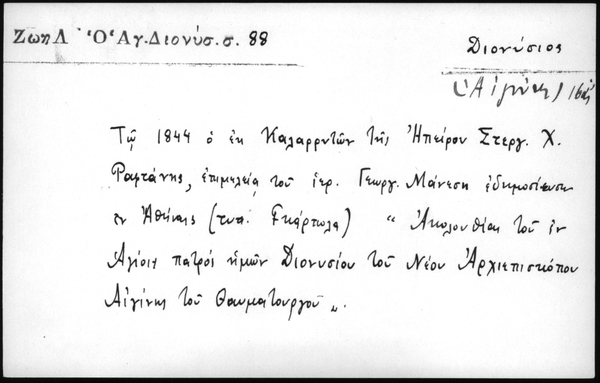 Ζωη Λ. Ὁ Ἅγ. Διονύσ. σ. 88
Διονύσιος
(Αἰγίνης)
Τῷ 1844 ὁ ἐκ Καλαρρυτῶν τῆς Ἠπείρου Στεργ. Χ.
Ραφτάνης, ἐπιμελείᾳ τοῦ ἱερ. Γεωργ. Μάνεση ἐδημοσίευσε
ἐν Ἀθήναις (τυπ. Γκάρπολα) " Ἀκολουθία τοῦ ἐν
Ἁγίοις πατρός ἡμῶν Διονυσίου τοῦ Νέου Ἀρχιεπισκόπου
Αἰγίνης τοῦ θαυματουργοῦ ".